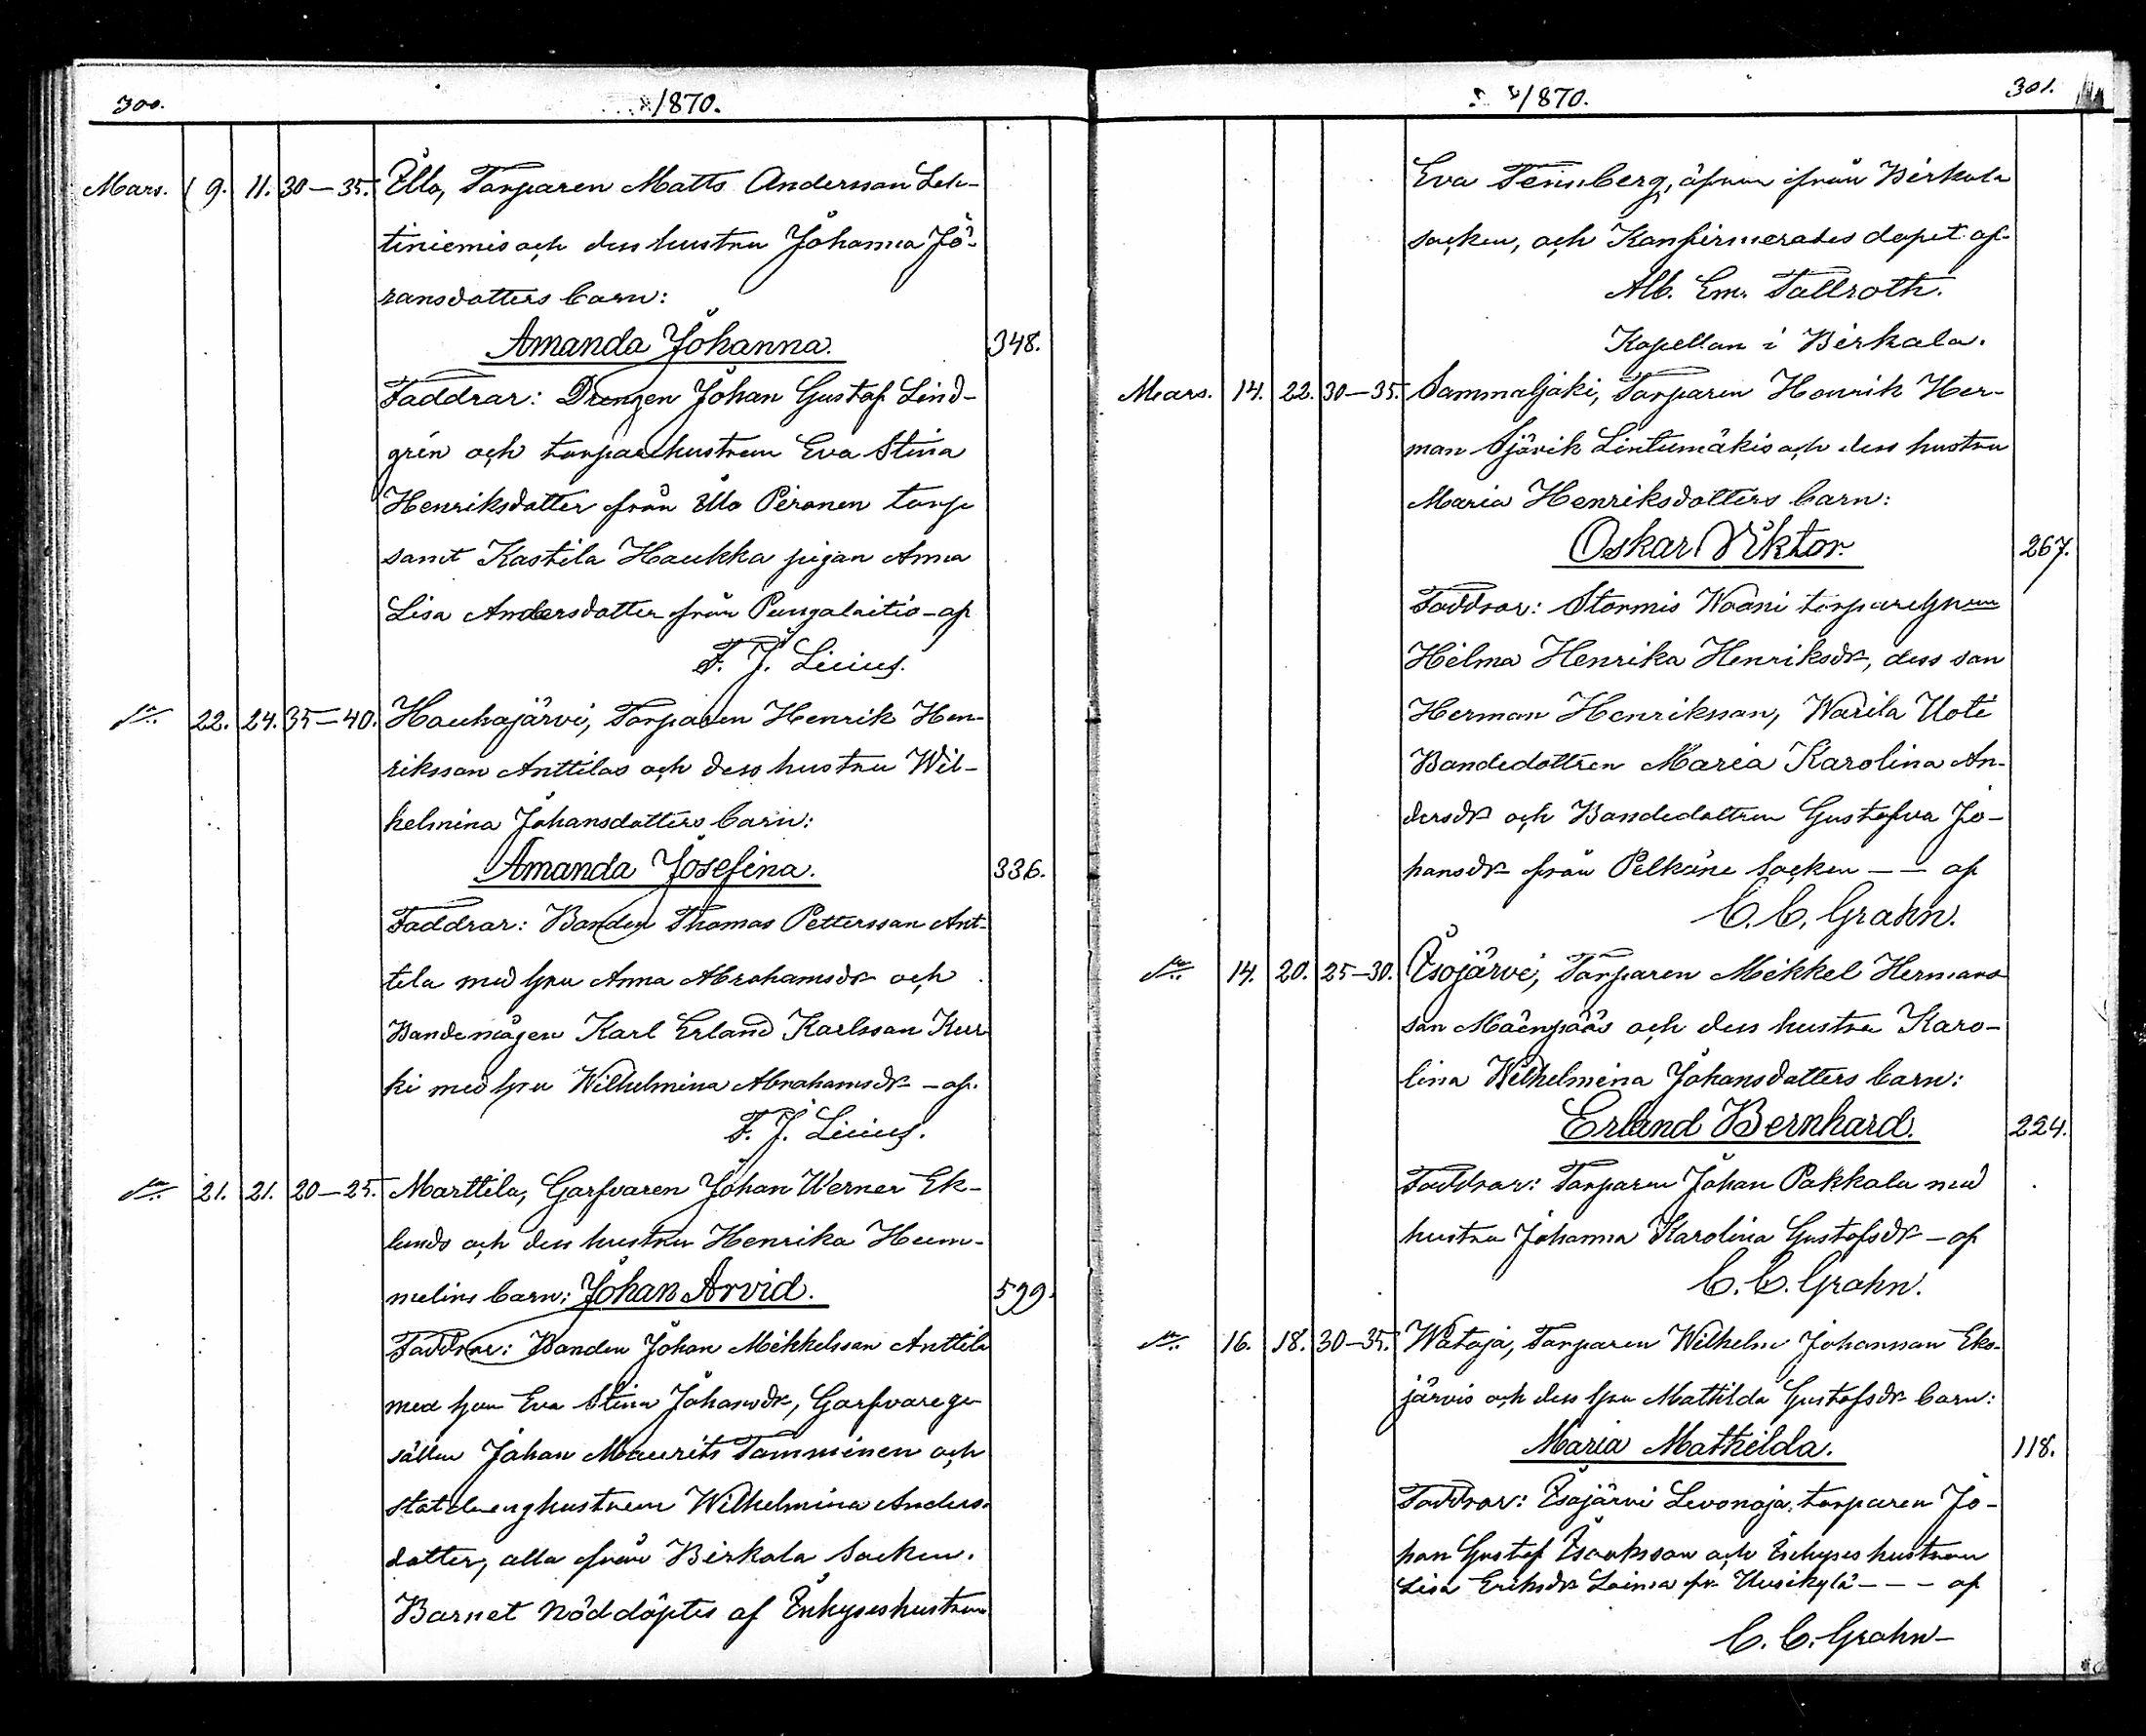 300.
1870.
Mars. 9. 11. 30—35. Illo, Torparen Matts Andersson Leh-
tiniemis och dess hustru Johanna Jö-
ransdotters barn:
Amanda Johanna. 348.
Faddrar: Drengen Johan Gustaf Lind-
grén och torparehustrun Eva Stina
Henriksdotter från Illo Pironen torp
samt Kastila Haukka pigan Anna
Lisa Andersdotter från Pungalaitio – af
F. J. Licius.
22. 24. 35—40. Houhajärvi, Torparen Henrik Hen-
riksson Anttilas och dess hustru Wil-
helmina Johansdotters barn:
Amanda Josefina. 336.
Faddrar: Bonden Thomas Pettersson Ant-
tila med hru Anna Abrahamsdr och
Bondemågen Karl Erland Karlsson Kur-
ki med hru Wilhelmina Abrahamsdr – af.
F. J. Licius.
21. 21. 20—25. Marttila, Garfvaren Johan Werner Ek-
lunds och dess hustru Henrika Hum-
melins barn: Johan Arvid. 599.
Faddrar: Bonden Johan Mikkelsson Anttila
med hru Eva Stina Johansdr, Garfvarege-
sällen Johan Maurits Tamminen och
statdrenghustrun Wilhelmina Anders-
dotter, alla från Birkala Socken.
Barnet nöddöptes af Inhyseshustrun
301.
1870.
Eva Tennberg, äfven från Birkala
socken, och Konfirmerades dopet af
Alb. Em. Tallroth.
Kapellan i Birkala.
Mars. 14. 22. 30—35. Sammaljoki, Torparen Henrik Her-
man Sjövik Lintumäkis och dess hustru
Maria Henriksdotters barn:
Oskar Viktor. 267.
Faddrar: Stormis Waani torparehrun
Hilma Henrika Henriksdr, dess son
Herman Henriksson, Warila Uoti
Bondedottren Maria Karolina An-
dersdr och Bondedottren Gustafva Jo-
hansdr från Pelkäne Socken – – af
C. C. Grahn.
14. 20. 25—30. Isojärvi, Torparen Mikkel Hermans-
son Mäenpääs och dess hustru Karo-
lina Wilhelmina Johansdotters barn:
Erland Bernhard. 224.
Faddrar: Torparen Johan Pakkala med
hustru Johanna Karolina Gustafsdr – af
C. C. Grahn.
16. 18. 30—35. Wataja, Torparen Wilhelm Johansson Eks-
järvis och dess hru Mathilda Gustafsdr barn:
Maria Mathilda. 118.
Faddrar: Isojärvi Levonoja torparen Jo-
han Gustaf Isaksson och Inhyses hustrun
Lisa Eriksdr Loima fr. Uusikylä – – – af
C. C. Grahn –